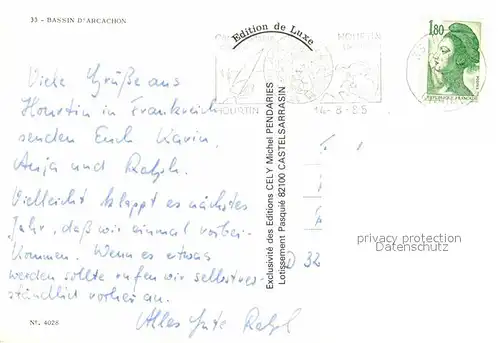 33 - BASSIN D'ARCACHON
Edition de Luxe
HOURTIN
HOURTIN
14-8-85
1,80
REPUBLIQUE FRANCAISE
Viele Grüße aus
Hourtin in Frankreich
senden Euch Karin,
Anja und Ralph.
Vielleicht klappt es nächstes
Jahr, daß wir einmal vorbei-
kommen. Wenn es etwas
werden sollte rufen wir selbstver-
ständlich vorher an.
Alles Gute Ralph
Exclusivité des Editions CELY Michel PENDARIES
Lotissement Pasquié 82100 CASTELSARRASIN -
D 32
privacy protection
Datenschutz
N°. 4028